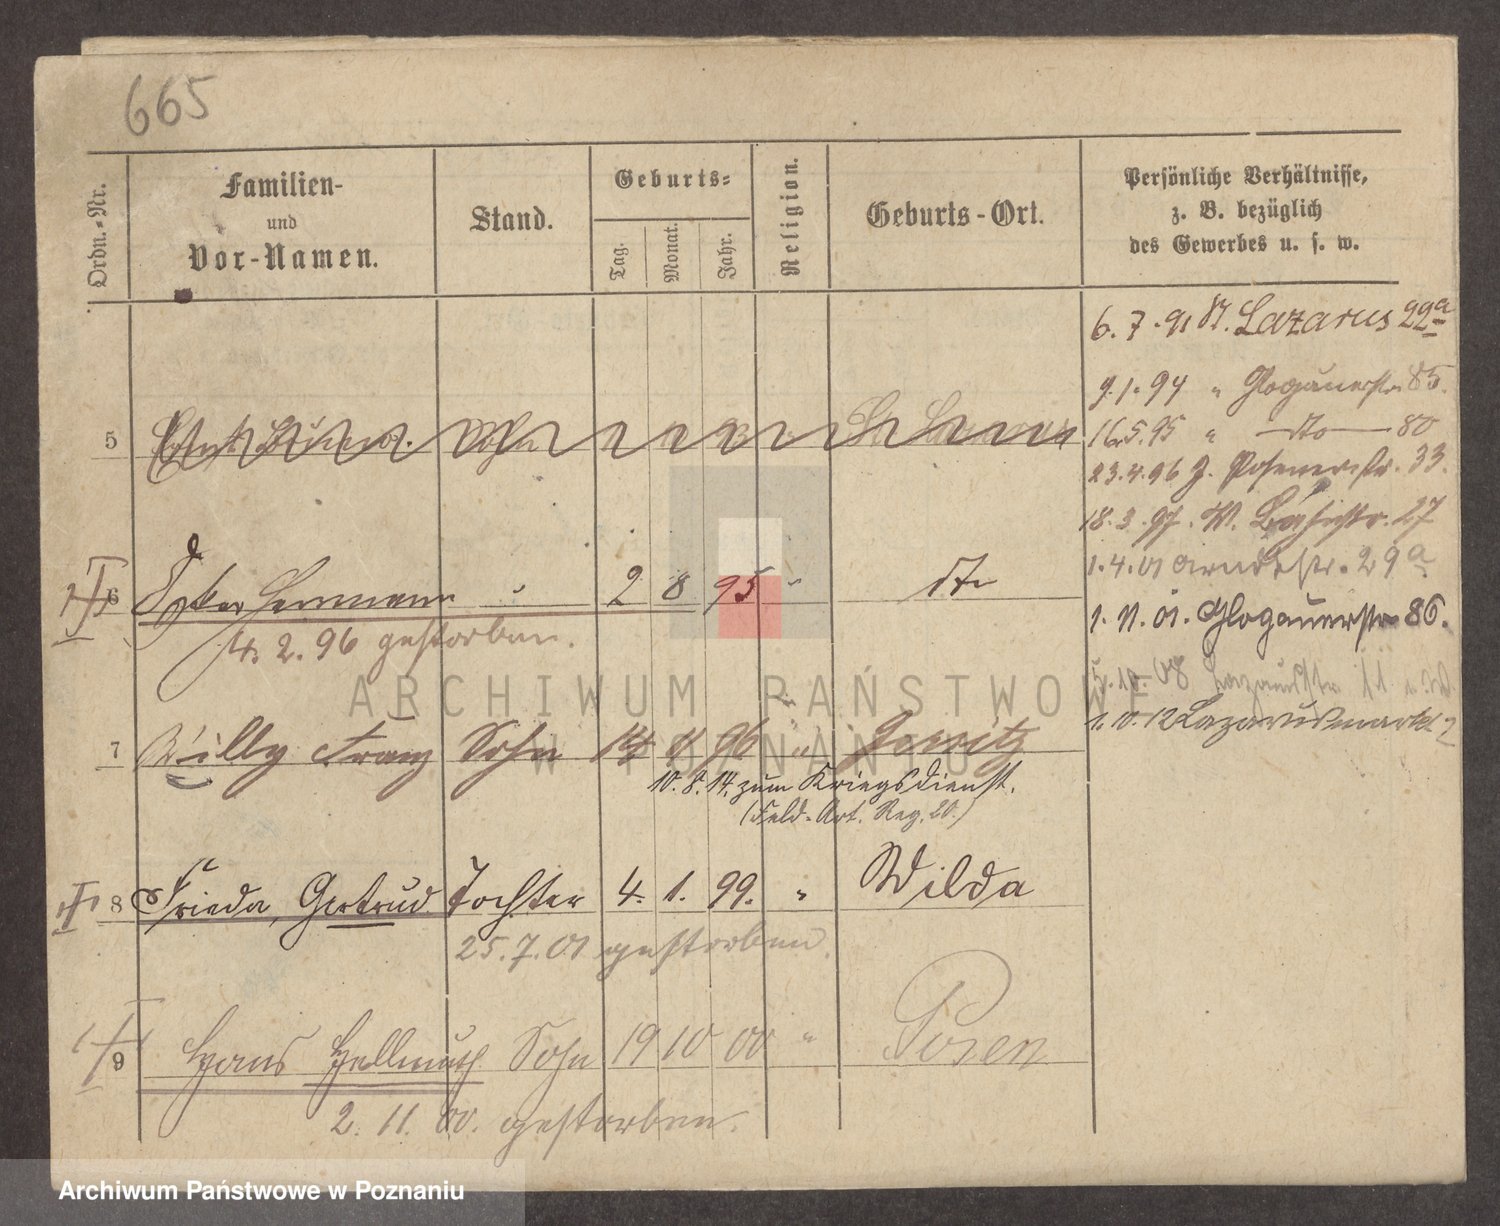 665
Ordn.-Nr.
Familien-
und
Vor-Namen.
Stand.
Geburts-
Tag.
Monat.
Jahr.
Religion.
Geburts-Ort.
Persönliche Verhältnisse,
z. B. bezüglich
des Gewerbes u. s. w.
6.7.91 St. Lazarus 22a
9.1.94 " Glogauerstr. 85.
5
16.5.95 " — dto — 80
23.4.96 J. Posenerstr. 33.
18.3.97. W. 27
1.4.01 Arndtstr. 29a
6 Herrmann " 2 8 95 " dto
1.11.01. Glogauerstr. 86.
4.2.96 gestorben.
5.10.08 11
ARCHIWUM PAŃSTWOWE
W POZNANIU
1.10.12 Lazarusmarkt 2
7 Willy Franz Sohn 14 4 96 " Jersitz
10.8.14. zum Kriegsdienst.
(Feld-Art. Reg. 20.)
8 Frieda, Gertrud Tochter 4. 1. 99. " Wilda
25.7.01 gestorben.
9 Hans Hellmuth Sohn 19 10 00 " Posen
2.11.00. gestorben.
Archiwum Państwowe w Poznaniu